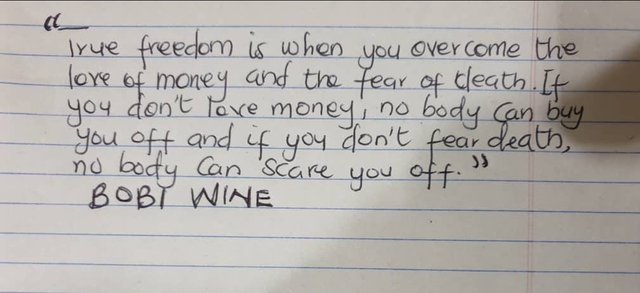 "
True freedom is when you overcome the
love of money and the fear of death. If
you don't love money, no body can buy
you off and if you don't fear death,
no body can scare you off."
BOBI WINE